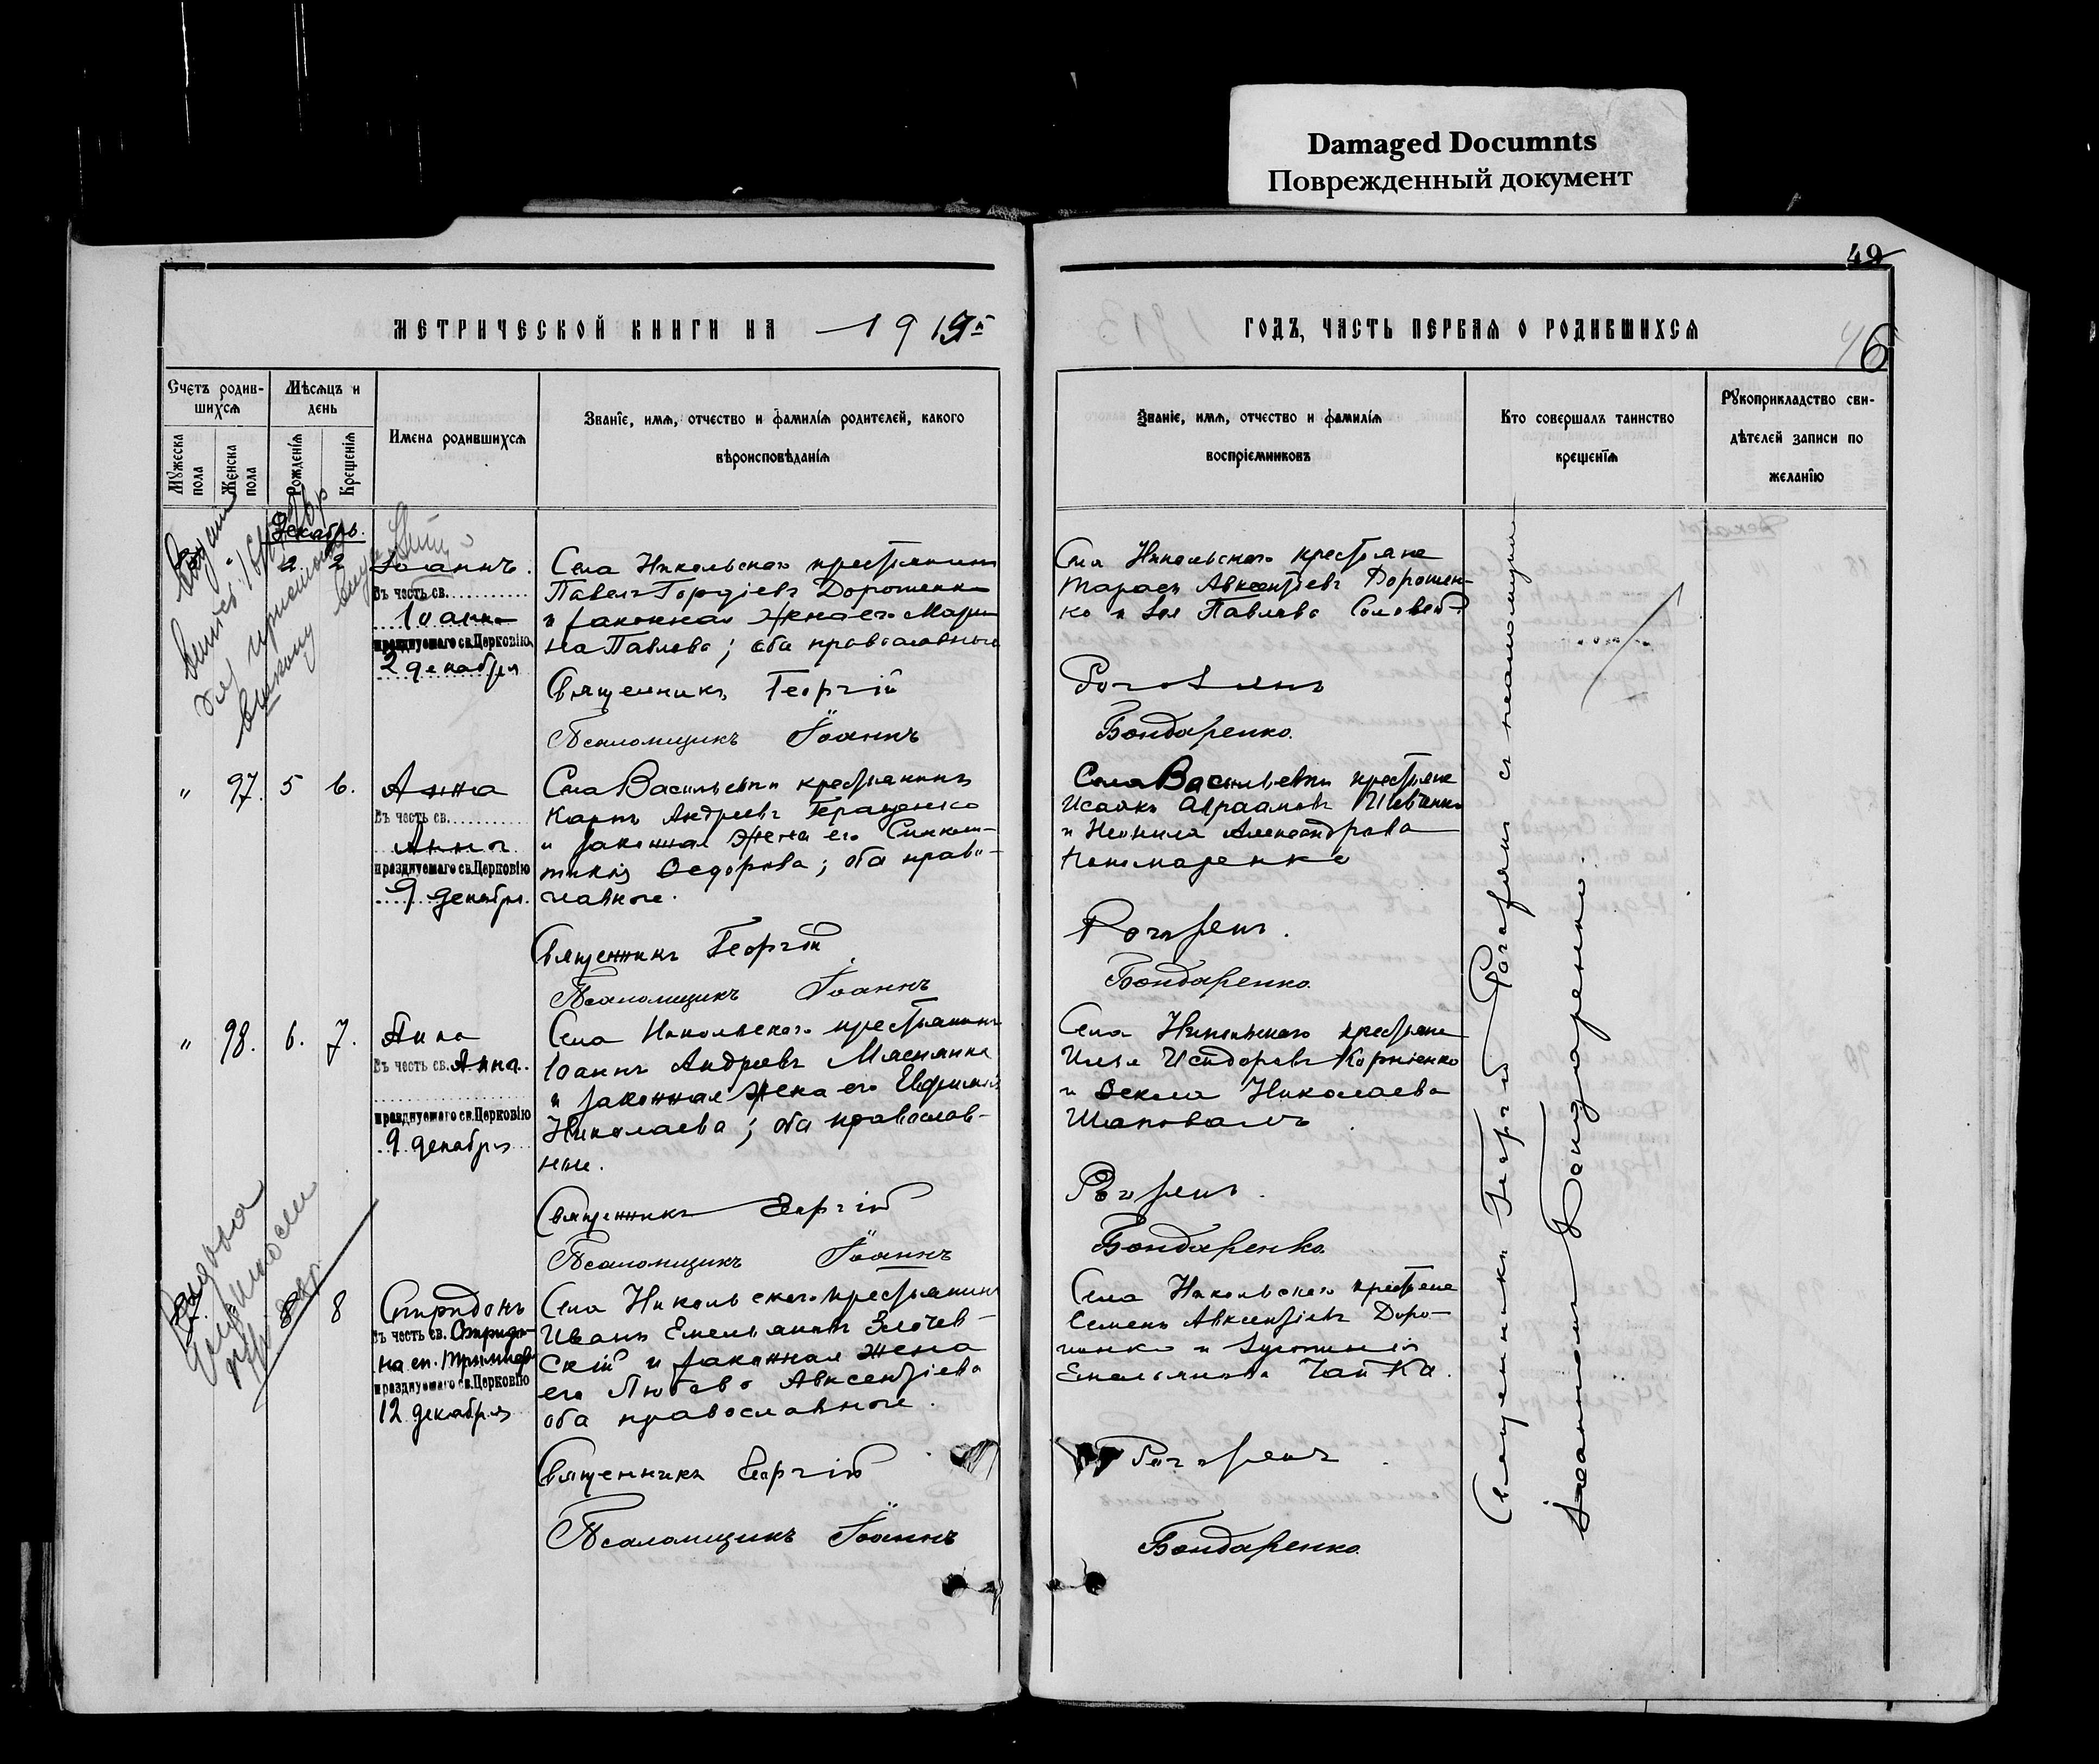 Damaged Documnts
Поврежденный документ
49
МЕТРИЧЕСКОЙ КНИГИ НА 1915 г.
ГОДЪ, ЧАСТЬ ПЕРВАЯ О РОДИВШИХСЯ
6
Счетъ родив-
шихся
Мѣсяцъ и
день
Имена родившихся
Званіе, имя, отчество и фамилія родителей, какого
вѣроисповѣданія
Мужеска
пола
Женска
пола
Рожденія
Крещенія
Званіе, имя, отчество и фамилія
воспріемниковъ
Кто совершалъ таинство
крещенія
Рукоприкладство сви-
дѣтелей записи по
желанію
Декабрь.
2 2 Іоаннъ.
Въ честь св.
Іоанна
празднуемаго св. Церковію
2 декабря
Села Никольскаго крестьянинъ
Павелъ Гордіевъ Дорошенко
и законная жена его Мари-
на Павлова; оба православные
Священникъ Георгій
Псаломщикъ Іоаннъ
Села Никольскаго крестьяне
Тарасъ Авксентіевъ Дорошен-
ко и Зоя Павлова Соловей
Рогозянъ
Бондаренко.
" 97. 5 6. Анна
Въ честь св.
Анна
празднуемаго св. Церковію
9 декабря.
Села Васильевки крестьянинъ
Карпъ Андреевъ Геращенко
и законная жена его Синкли-
тикія Федорова; оба право-
славные.
Священникъ Георгій
Псаломщикъ Іоаннъ
Села Васильевки крестьяне
Исаакъ Авраамовъ Шевченко
и Неонила Александрова
Пономаренко
Рогозянъ.
Бондаренко.
" 98. 6. 7. Анна
Въ честь св. Анна.
празднуемаго св. Церковію
9 декабря
Села Никольскаго крестьянинъ
Іоаннъ Андреевъ Мясникъ
и законная жена его Евфимія
Николаева; оба православ-
ные.
Священникъ Георгій
Псаломщикъ Іоаннъ
Села Никольскаго крестьяне
Илья Исидоровъ Корніенко
и Фекла Николаева
Шаповалъ
Рогозянъ.
Бондаренко.
8 8 Спиридонъ
Въ честь св. Спиридо-
на еп. Тримиф.
празднуемаго св. Церковію
12 декабря
Села Никольскаго крестьянинъ
Иванъ Емельяновъ Злочев-
скій и законная жена
его Любовь Авксентіева
оба православные.
Священникъ Георгій
Псаломщикъ Іоаннъ
Села Никольскаго крестьяне
Семенъ Авксентіевъ Доро-
шенко и
Емельянова Чайка.
Рогозянъ
Бондаренко.
Священникъ Георгій Рогозянъ съ псаломщикомъ
Іоанномъ Бондаренко.